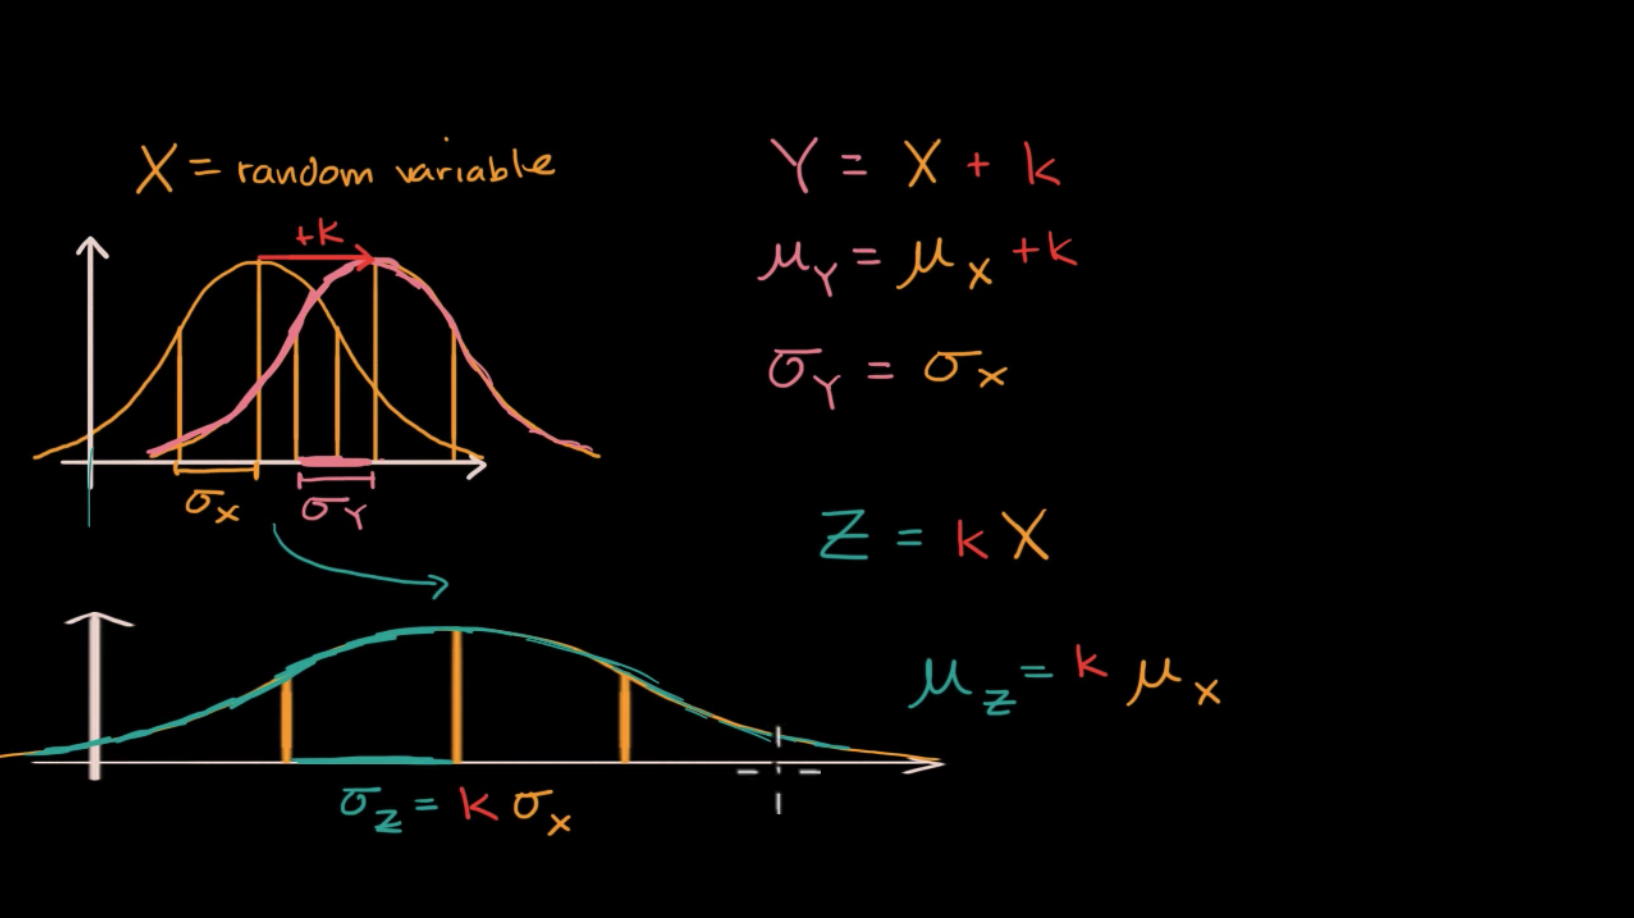 X = random variable
+k
σ_X
σ_Y
Y = X + k
μ_Y = μ_X + k
σ_Y = σ_X
Z = k X
μ_Z = k μ_X
σ_Z = k σ_X